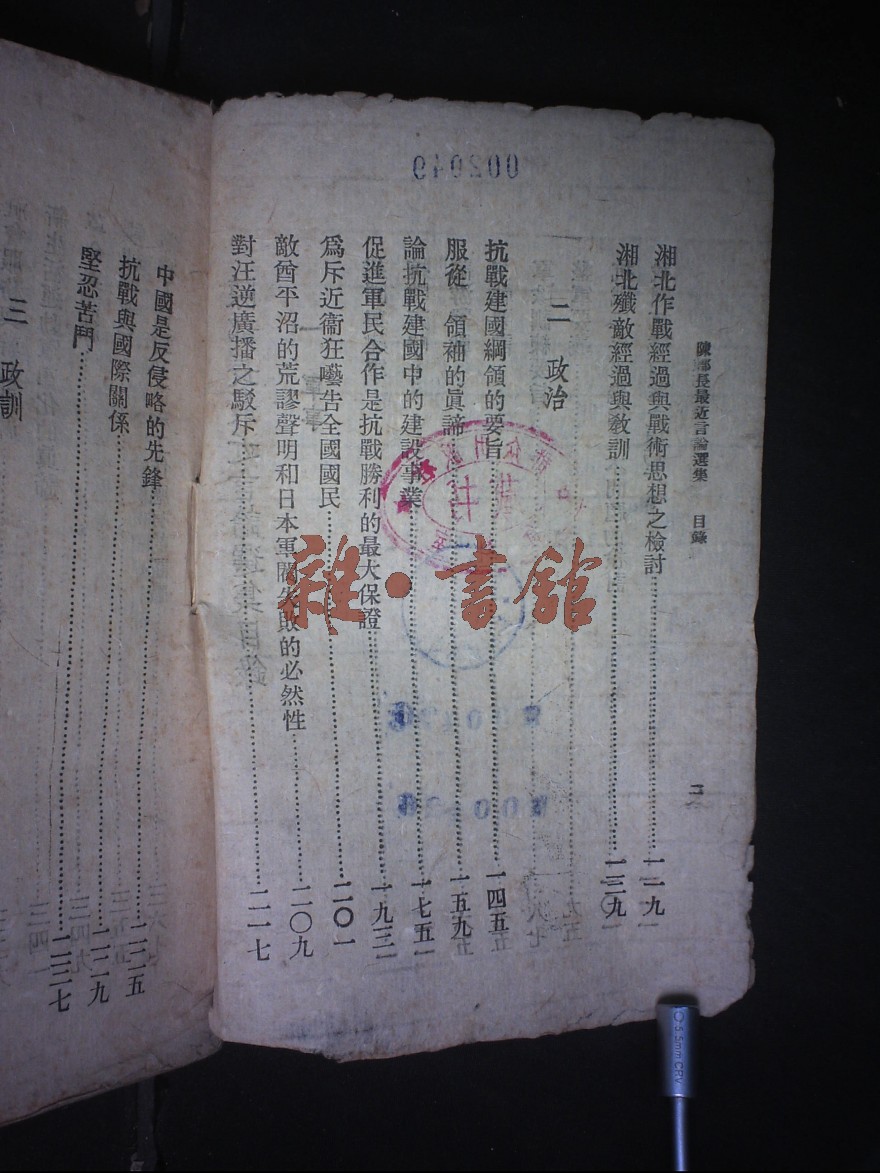 002049
陳部長最近言論選集　目錄　二
湘北作戰經過與戰術思想之檢討……一二九
湘北殲敵經過與教訓……一三九
二　政治
抗戰建國綱領的要旨……一四五
服從　領袖的眞諦……一五九
論抗戰建國中的建設事業……一七五
促進軍民合作是抗戰勝利的最大保證……一九三
爲斥近衞狂囈告全國國民……二〇一
敵酋平沼的荒謬聲明和日本軍閥失敗的必然性……二〇九
對汪逆廣播之駁斥……二一七
中國是反侵略的先鋒……二二五
抗戰與國際關係……二二九
堅忍苦鬥……二三七
三　政訓
雜·書館
3.5mm CRV